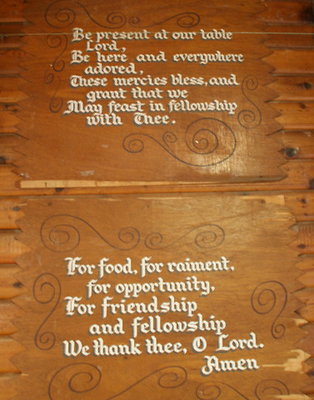 Be present at our table
Lord,
Be here and everywhere
adored,
These mercies bless, and
grant that we
May feast in fellowship
with Thee.
For food, for raiment,
for opportunity,
For friendship
and fellowship
We thank thee, O Lord.
Amen